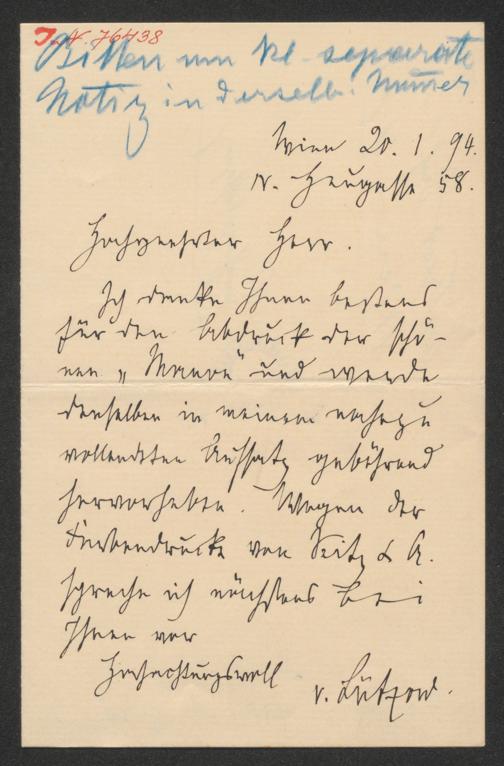 I. N. 76438
Bitten um kl. separate
Notiz in derselb. Numer
Wien 20. 1. 94.
IV. Heugasse 58.
Hochgeehrter Herr.
Ich danke Ihnen bestens
für den Abdruck der schö-
nen „ " und werde
denselben in meinem nahezu
vollendeten Aufsatz gebührend
hervorheben. Wegen der
Farbendrucke von Seitz & A.
spreche ich nächstens bei
Ihnen vor
Hochachtungsvoll
v. Lützow.